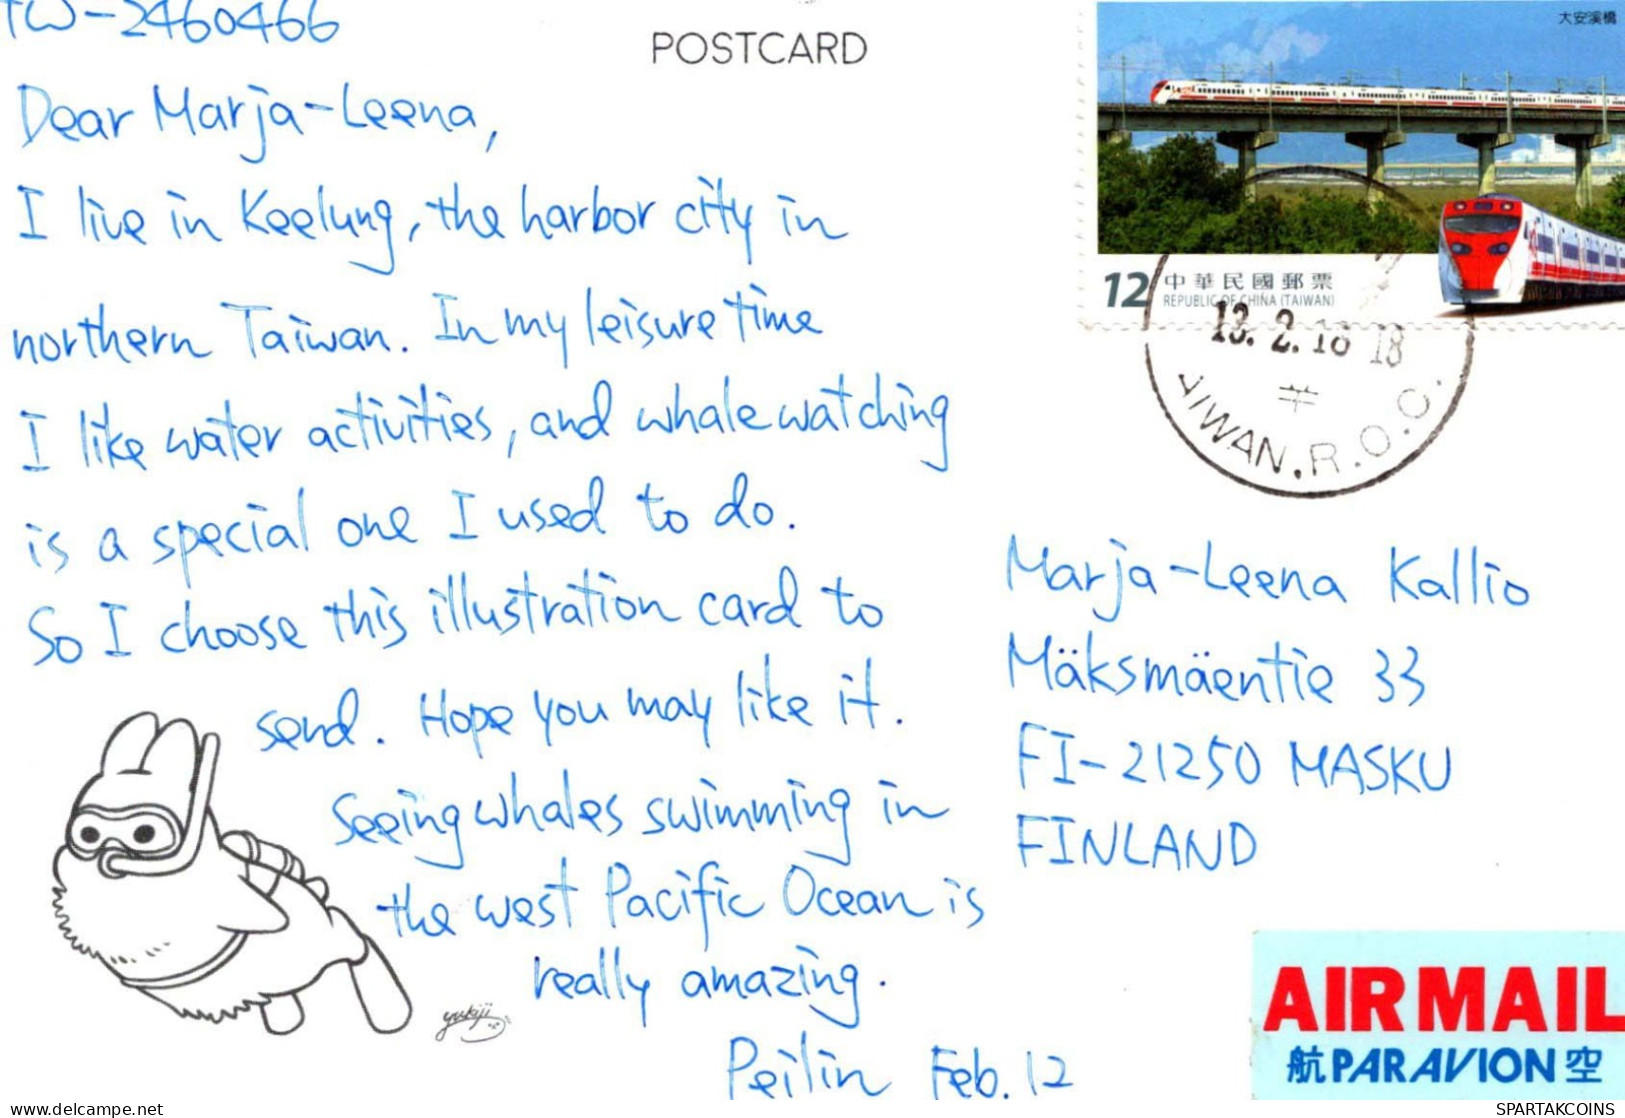 TW-2460466
POSTCARD
Dear Marja-Leena,
I live in Keelung, the harbor city in
northern Taiwan. In my leisure time
I like water activities, and whale watching
is a special one I used to do.
So I choose this illustration card to
send. Hope you may like it.
Seeing whales swimming in
the west Pacific Ocean is
really amazing.
Peilin Feb. 12
yukiji
大安溪橋
12 中華民國郵票
REPUBLIC OF CHINA (TAIWAN)
13. 2. 18 18
TAIWAN. R.O.C.
Marja-Leena Kallio
Mäksmäentie 33
FI-21250 MASKU
FINLAND
AIR MAIL
航 PAR AVION 空
eu.delcampe.net
SPARTAKCOINS